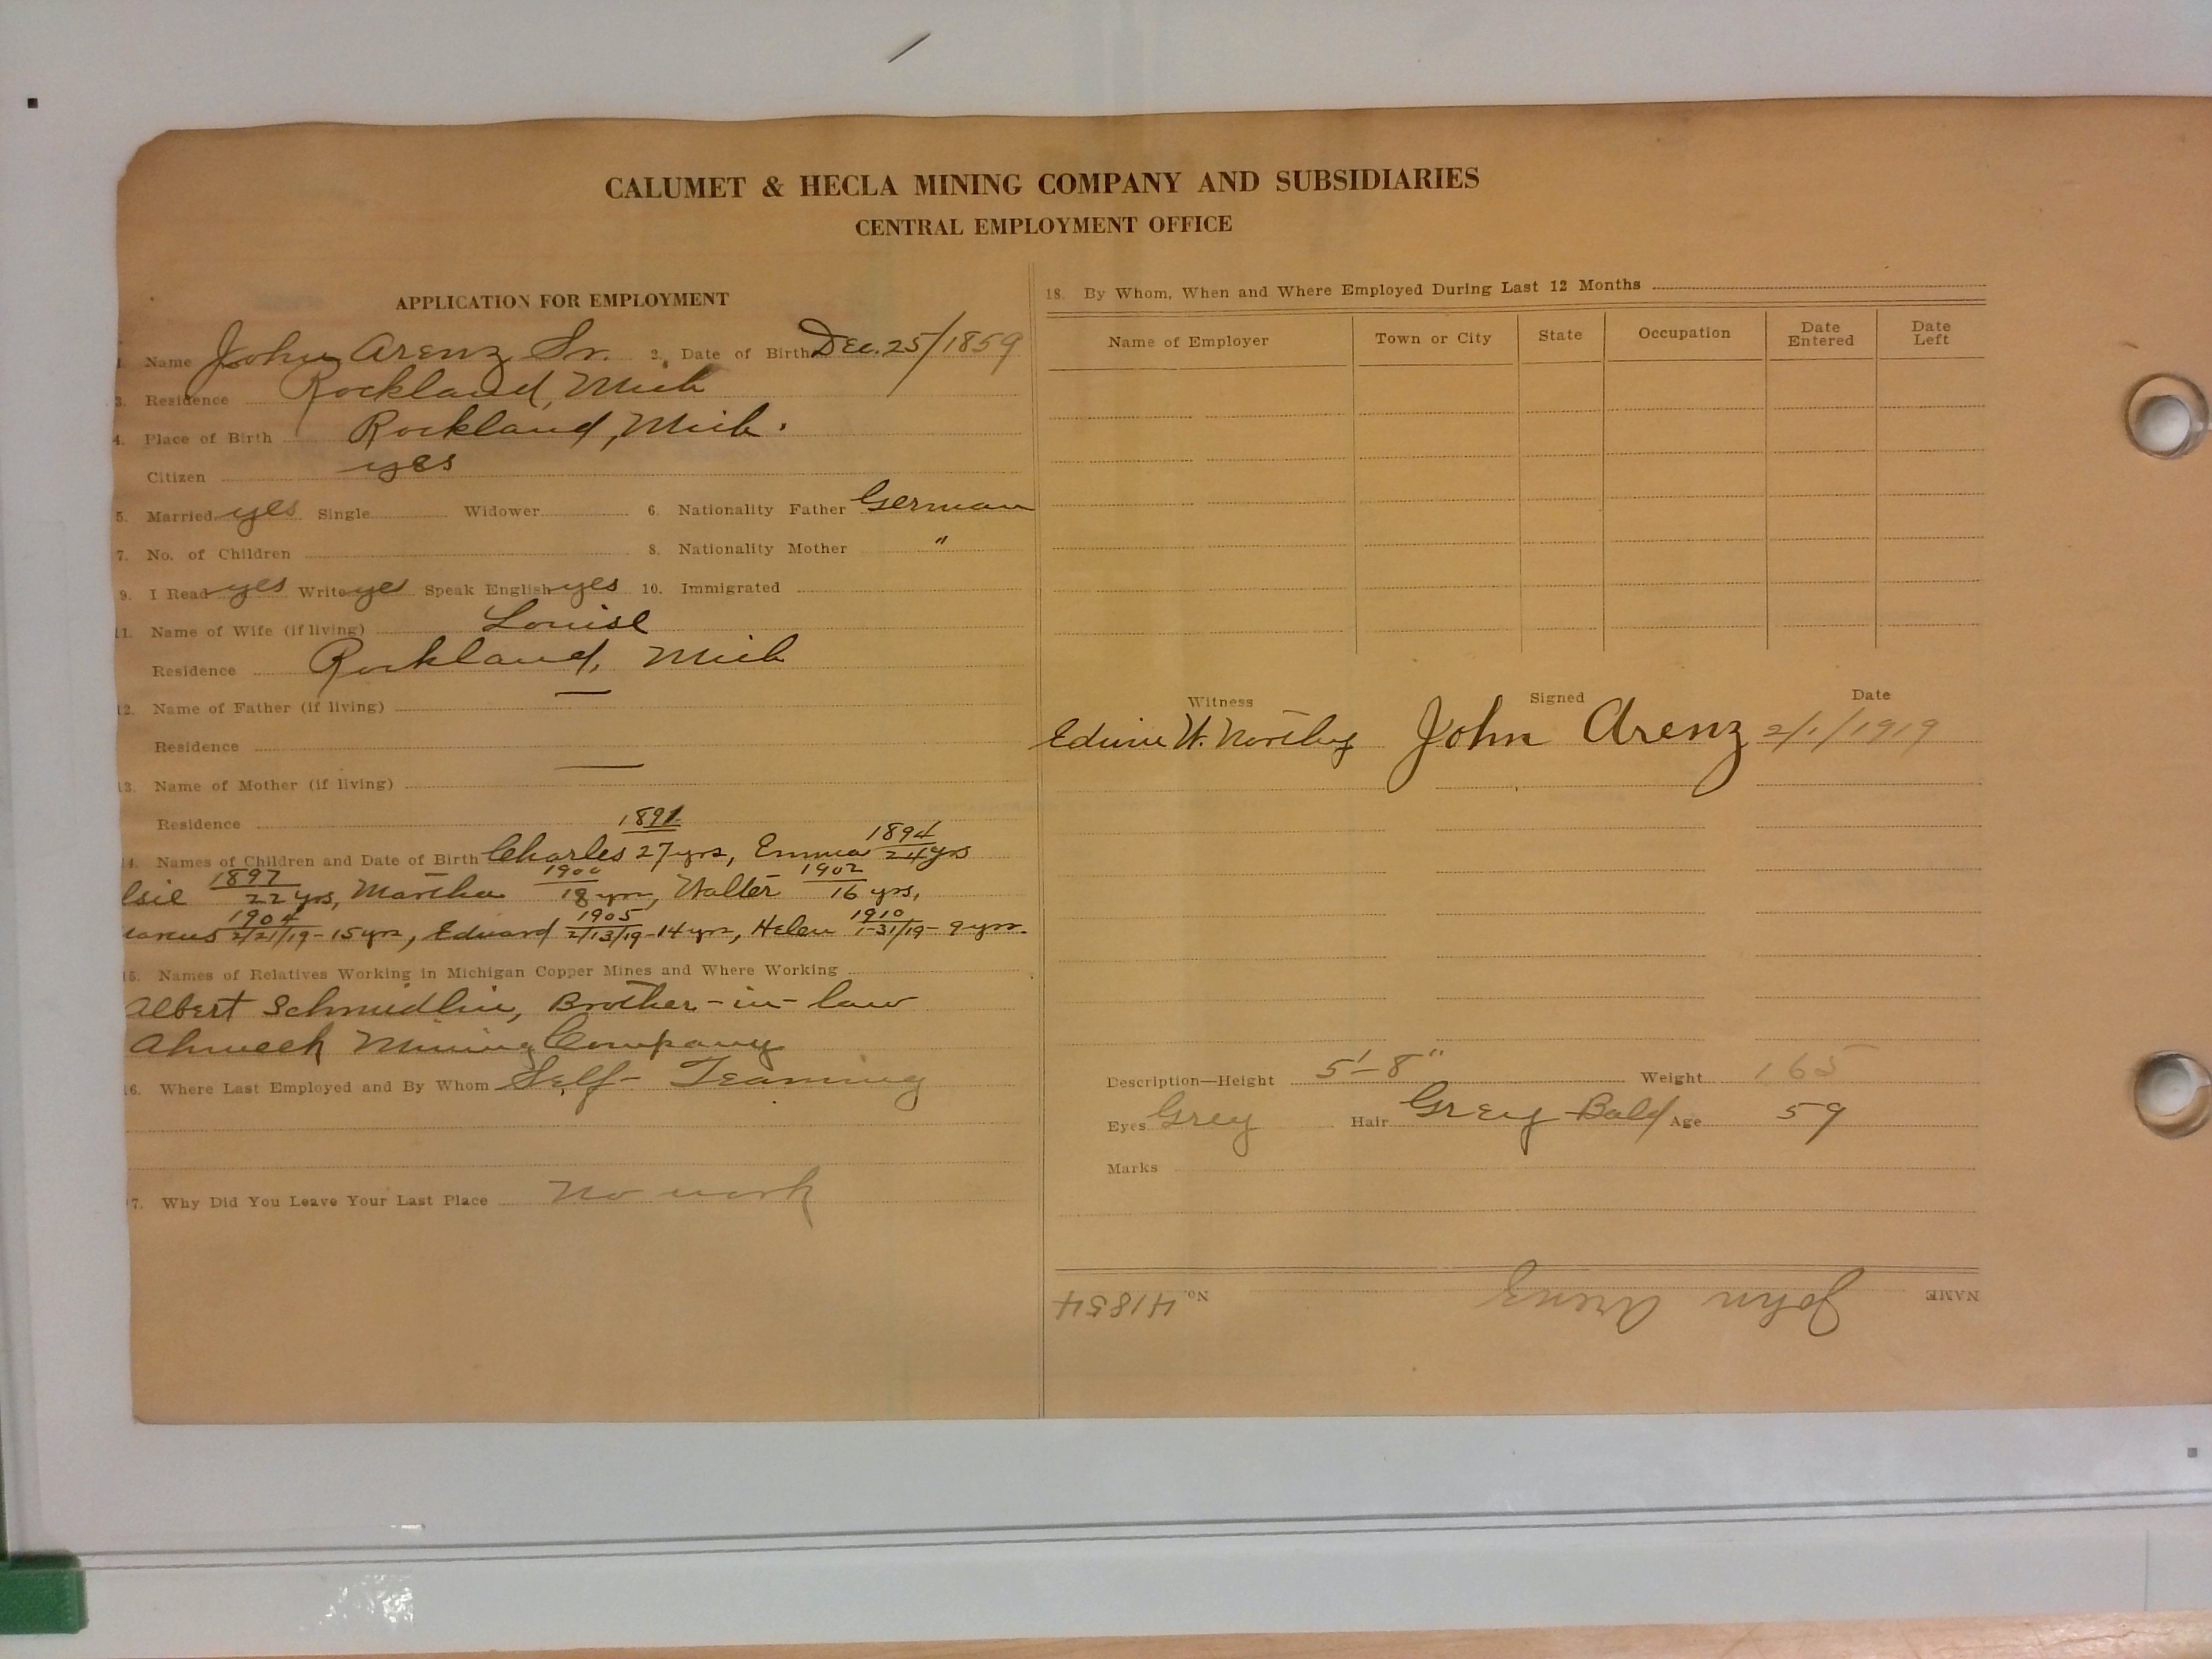 CALUMET & HECLA MINING COMPANY AND SUBSIDIARIES
CENTRAL EMPLOYMENT OFFICE
APPLICATION FOR EMPLOYMENT
1. Name John Arenz Sr. 2. Date of Birth Dec. 25/1859
3. Residence Rockland, Mich
4. Place of Birth Rockland, Mich.
Citizen yes
5. Married yes Single Widower 6. Nationality Father German
7. No. of Children 8. Nationality Mother "
9. I Read yes Write yes Speak English yes 10. Immigrated
11. Name of Wife (if living) Louise
Residence Rockland, Mich
12. Name of Father (if living) —
Residence
13. Name of Mother (if living) —
Residence
1891 1894
14. Names of Children and Date of Birth Charles 27 yrs, Emma 24 yrs
1897 1900 1902
lsie 22 yrs, Martha 18 yrs, Walter 16 yrs,
1904 1905 1910
2/21/19 - 15 yrs, Edward 2/13/19 - 14 yrs, Helen 1-31/19 - 9 yrs.
15. Names of Relatives Working in Michigan Copper Mines and Where Working
Albert Schmidlin, Brother-in-law
Ahmeek Mining Company
16. Where Last Employed and By Whom Self- Teaming
17. Why Did You Leave Your Last Place No work
18. By Whom, When and Where Employed During Last 12 Months
Name of Employer Town or City State Occupation Date Entered Date Left
Witness Signed Date
Edwin W. John Arenz 2/1/1919
Description—Height 5'-8" Weight 165
Eyes Grey Hair Grey-Bald Age 59
Marks
NAME John Arenz No. 41854